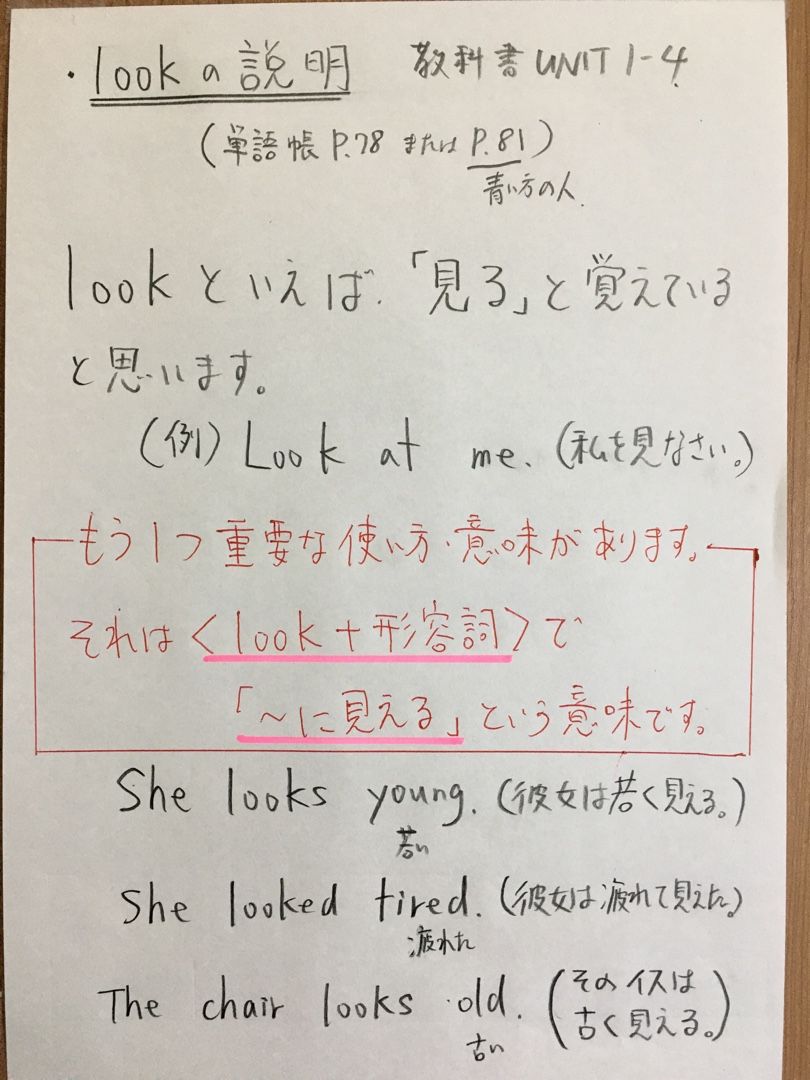 ・lookの説明 教科書 UNIT 1-4
(単語帳 P.78 または P.81)
青い方の人
lookといえば、「見る」と覚えている
と思います。
(例) Look at me. (私を見なさい。)
もう1つ重要な使い方・意味があります。
それは<look+形容詞>で
「~に見える」という意味です。
She looks young. (彼女は若く見える。)
若い
She looked tired. (彼女は疲れて見えた。)
疲れた
The chair looks old. (そのイスは
古く見える。)
古い